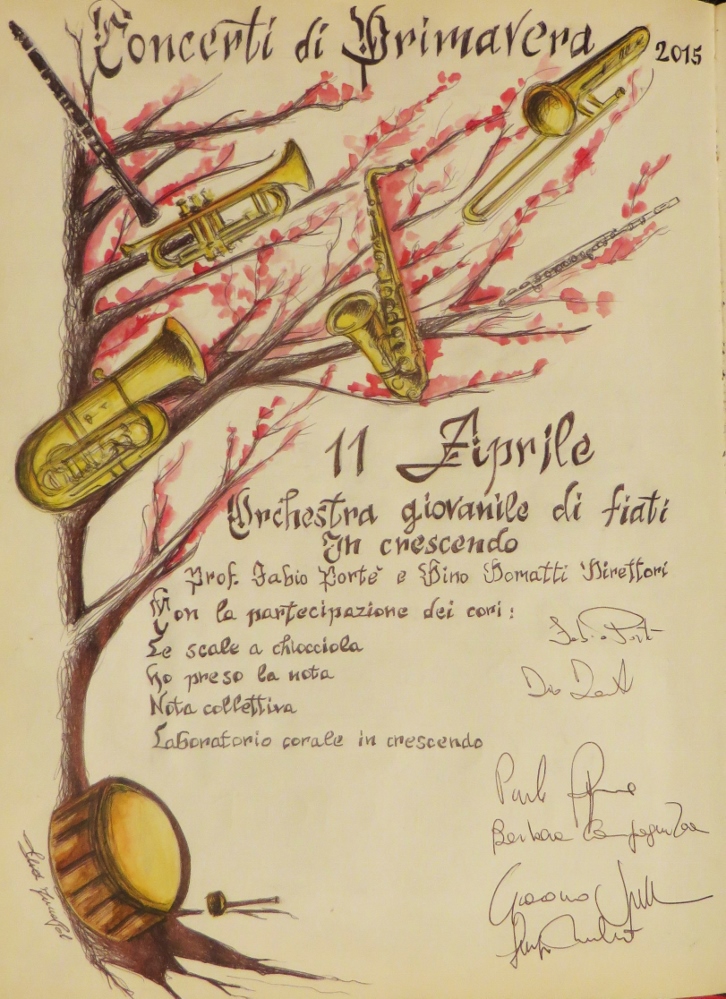 Concerti di Primavera 2015
11 Aprile
Orchestra giovanile di fiati
In crescendo
Prof. Fabio Portè e Dino Domatti Direttori
Con la partecipazione dei cori:
Le scale a chiocciola
Ho preso la nota
Nota collettiva
Laboratorio corale in crescendo
Barbara